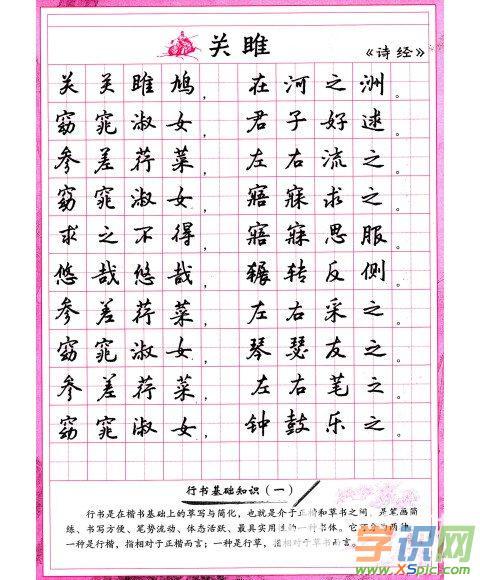 关雎
《诗经》
关关雎鸠，在河之洲。
窈窕淑女，君子好逑。
参差荇菜，左右流之。
窈窕淑女，寤寐求之。
求之不得，寤寐思服。
悠哉悠哉，辗转反侧。
参差荇菜，左右采之。
窈窕淑女，琴瑟友之。
参差荇菜，左右芼之。
窈窕淑女，钟鼓乐之。
行书基础知识（一）
行书是在楷书基础上的草写与简化，也就是介于正楷和草书之间，是笔画简
练、书写方便、笔势流动、体态活跃、最具实用性的一种书体。它
一种是行楷，指相对于正楷而言；一种是行草，指相对于草书而言。
学识网
www.XSpic.com